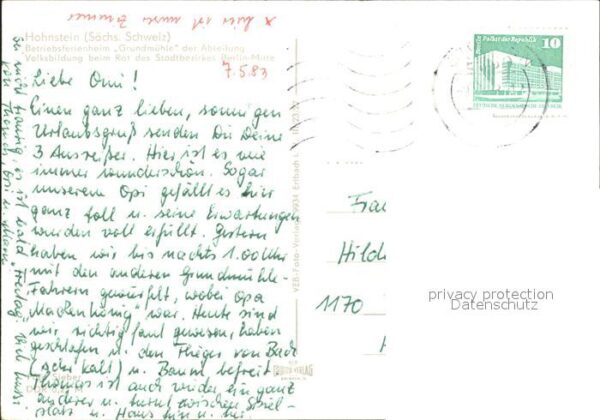 x hier ist unser Zimmer
Hohnstein (Sächs. Schweiz)
Betriebsferienheim „Grundmühle" der Abteilung
Volksbildung beim Rat des Stadtbezirkes Berlin-Mitte
7.5.83
Liebe Omi!
Einen ganz lieben, sonnigen
Urlaubsgruß senden Dir Deine
3 Ausreißer. Hier ist es wie
immer wunderschön. Sogar
unserem Opi gefällt es hier
ganz toll u. seine Erwartungen
wurden voll erfüllt. Gestern
haben wir bis nachts 1.00 Uhr
mit den anderen Grundmühle-
Fahrern gewürfelt, wobei Opa
„Mäxchenkönig" war. Heute sind
wir richtig faul gewesen, haben
geschlafen u. den Flieger von Bach
(sehr kalt) u. Baum befreit.
Thomas ist auch wieder ein ganz
anderer u. turnt zwischen Spiel-
platz u. Haus hin u. her
Sei nicht traurig, es ist bald Freitag! Dich
Thomas, u.
VEB-Foto-Verlag Erlbach
Palast der Republik
10
Frau
Hild
1170
privacy protection
Datenschutz